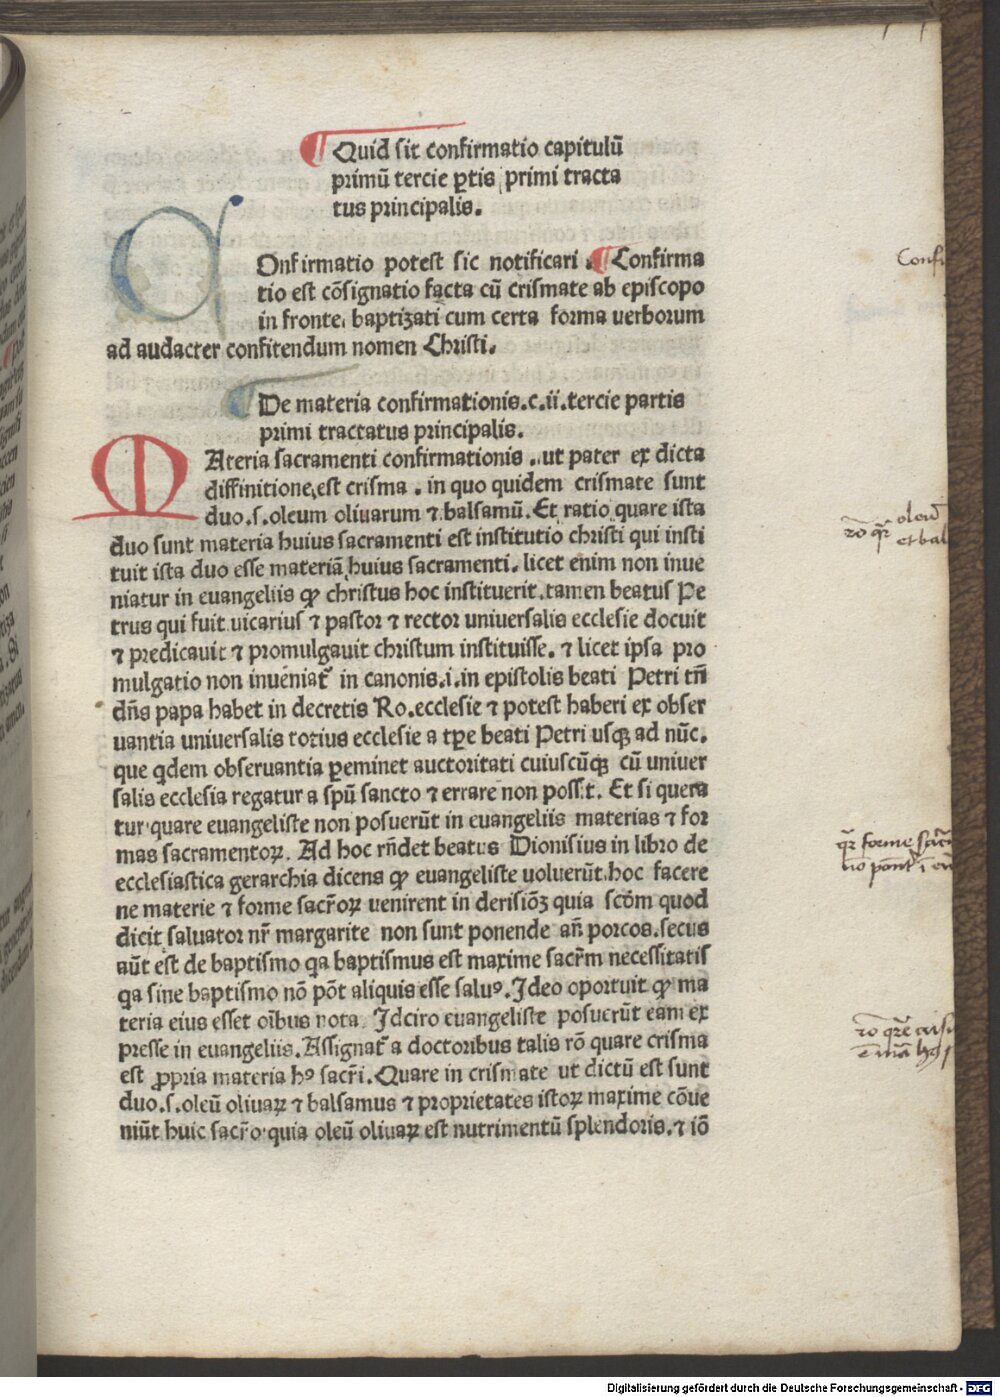 ¶ Quid sit confirmatio capitulū
primū tercie ꝑtis primi tracta
tus principalis.
COnfirmatio potest sic notificari . ¶ Confirma
tio est cōsignatio facta cū crismate ab episcopo
in fronte, baptizati cum certa forma uerborum
ad audacter confitendum nomen Christi.
¶ De materia confirmationis.c.ii.tercie partis
primi tractatus principalis.
MAteria sacramenti confirmationis .ut pater ex dicta
diffinitione,est crisma . in quo quidem crismate sunt
duo.s.oleum oliuarum ⁊ balsamū. Et ratio quare ista
duo sunt materia huius sacramenti est institutio christi qui insti
tuit ista duo esse materiā huius sacramenti. licet enim non inue
niatur in euangeliis ꝙ christus hoc instituerit.tamen beatus Pe
trus qui fuit uicarius ⁊ pastor ⁊ rector uniuersalis ecclesie docuit
⁊ predicauit ⁊ promulgauit christum instituisse. ⁊ licet ipsa pro
mulgatio non inueniat᷑ in canonis.i.in epistolis beati Petri tn̄
dn̄s papa habet in decretis Ro.ecclesie ⁊ potest haberi ex obser
uantia uniuersalis totius ecclesie a tꝑe beati Petri usqꝫ ad nūc.
que qdem obseruantia ꝑeminet auctoritati cuiuscūqꝫ cū uniuer
salis ecclesia regatur a spū sancto ⁊ errare non possit. Et si quera
tur quare euangeliste non posuerūt in euangeliis materias ⁊ for
mas sacramentoꝝ. Ad hoc rn̄det beatus Dionisius in libro de
ecclesiastica gerarchia dicens ꝙ euangeliste uoluerūt hoc facere
ne materie ⁊ forme sacr̄oꝝ uenirent in derisiōꝫ quia scōm quod
dicit saluator nr̄ margarite non sunt ponende an̄ porcos.secus
aūt est de baptismo qa baptismus est maxime sacr̄m necessitatis
qa sine baptismo nō pōt aliquis esse saluꝰ. Ideo oportuit ꝙ ma
teria eius esset oībus nota. Idciro euangeliste posuerūt eam ex
presse in euangeliis. Assignat᷑ a doctoribus talis rō quare crisma
est ꝓpria materia hꝰ sacr̄i. Quare in crismate ut dictū est sunt
duo.s.oleū oliuaꝝ ⁊ balsamus ⁊ proprietates istoꝝ maxime cōue
niūt huic sacr̄o quia oleū oliuaꝝ est nutrimentū splendoris.⁊ iō
Confi
rō qr̄ oleū
et bal
qr̄ forme
rō qr̄e
Digitalisierung gefördert durch die Deutsche Forschungsgemeinschaft - DFG